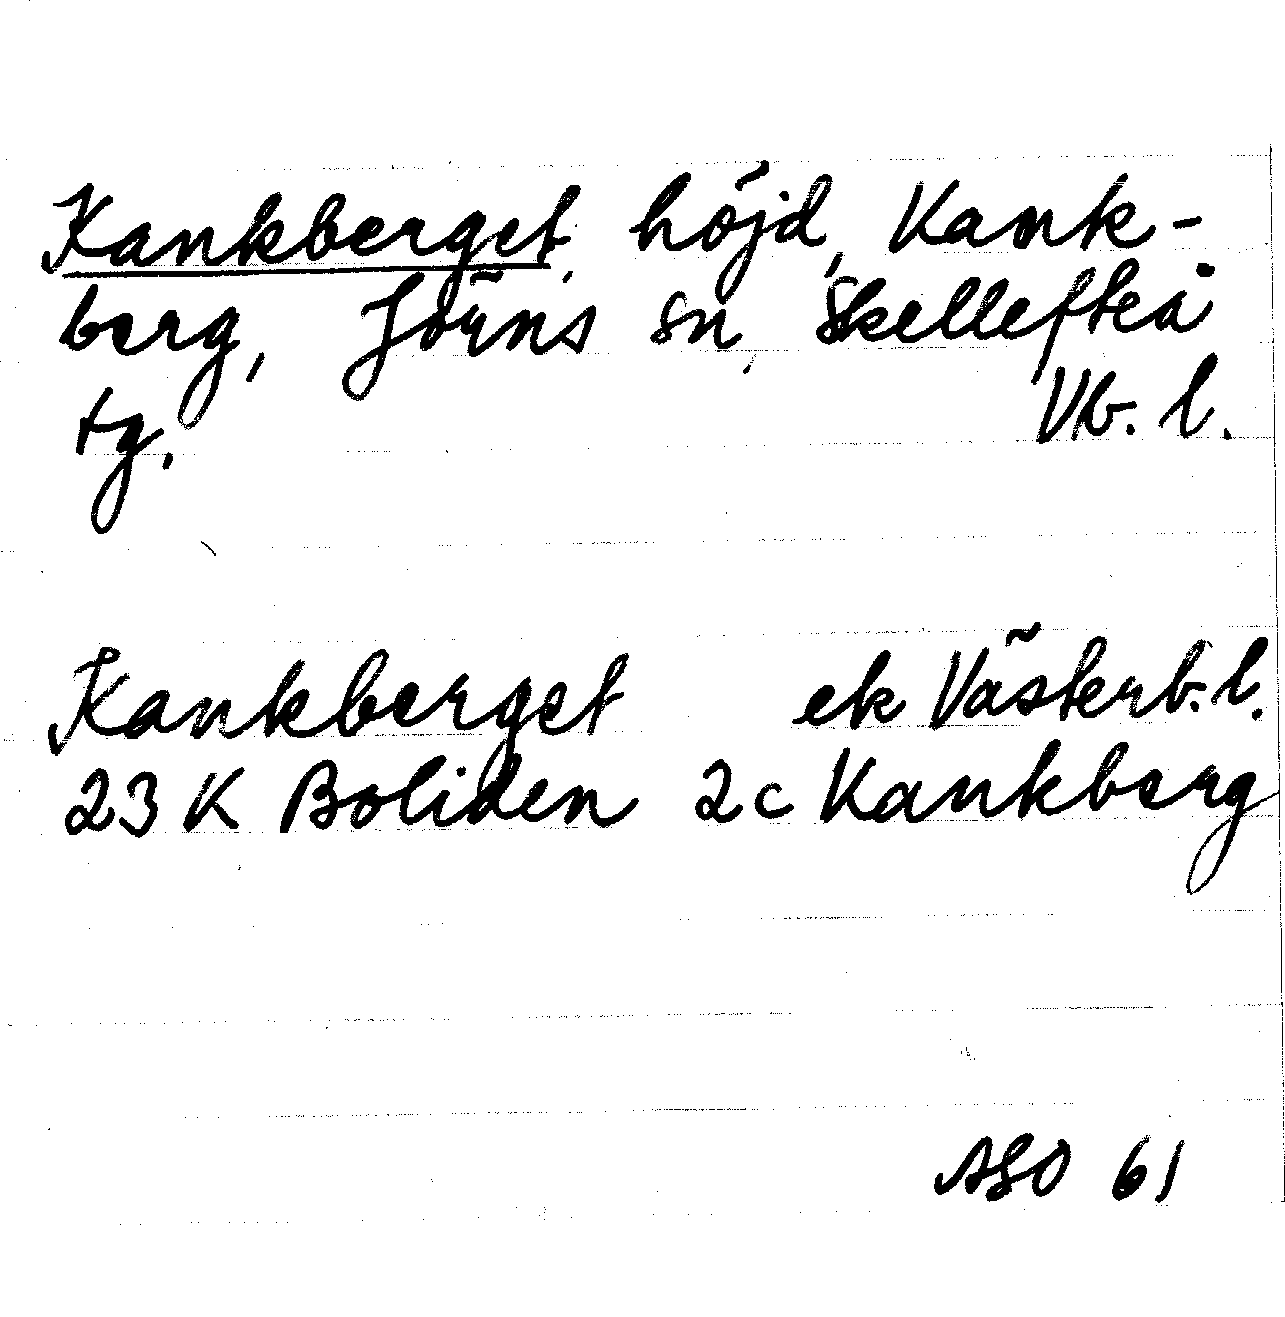 Kankberget, höjd, Kank-
berg, Jörns sn, Skellefteå
tg. Vb. l.
Kankberget ek Västerb. l.
23 K Boliden 2c Kankberg
ASO 61